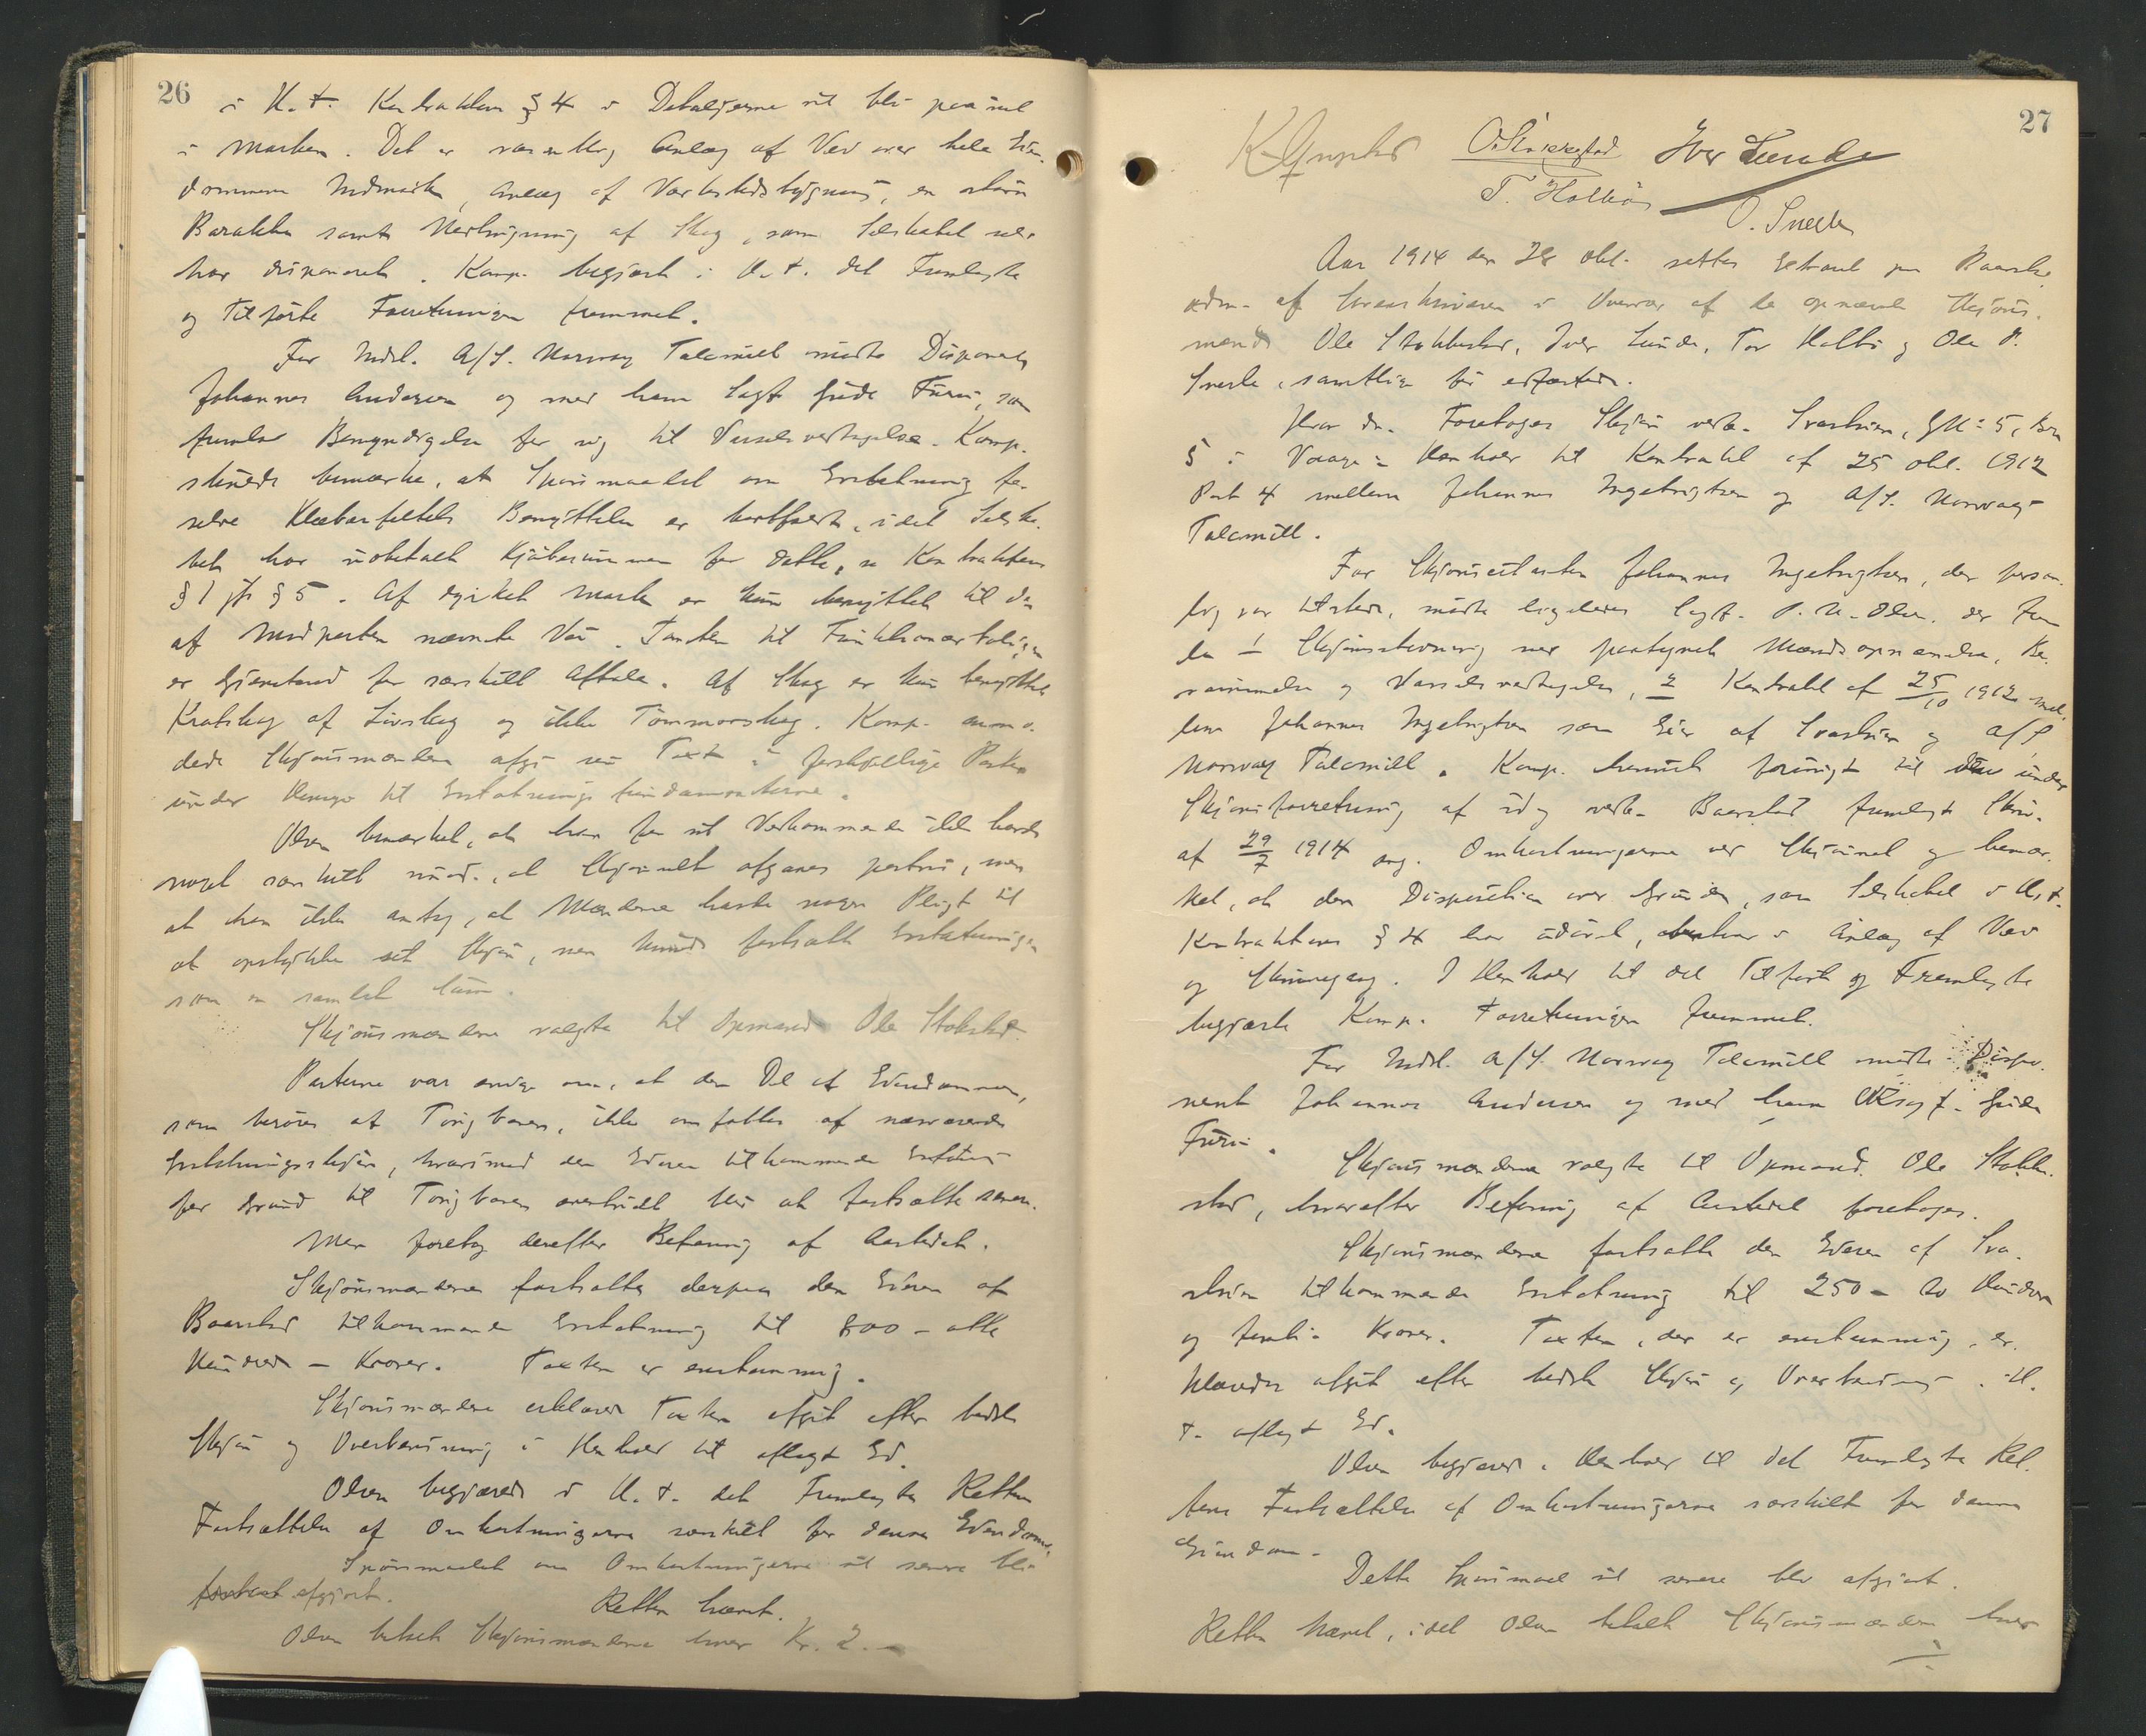 26
i H. t. Kontraktens § 4 i Detaljerne vil bli paavist
i Marken. Det er væsentlig Anlæg af Vei over hele Eien-
dommens Indmark, Anlæg af Værkstedsbygning, en større
Barakke samt Nedhugning af Skog, som Selskabet selv
har disponeret. Komp. begjærte i H. t. det Fremlagte
og Tilførte Forretningen fremmet.
For Indst. A/S. Norway Talcmill mødte Disponent
Johannes Andersen og med ham Sagf. Gude Furu, som
fremla Bemyndigelse for sig til Varselsvedtagelse. Komp.
skulde bemærke, at Spørsmaalet om Erstatning for
selve Klæberfeltets Benyttelse er bortfaldt, idet Selska-
bet har utbetalt Kjøbesummen for dette, se Kontraktens
§ 1 jfr § 5. Af dyrket Mark er kun benyttet til den
af Modparten nævnte Vei. Tomten til Funktionærboligen
er Gjenstand for særskilt Aftale. Af Skog er kun benyttet
Kratskog af Løvskog og ikke Tømmerskog. Komp. anmo-
dede Skjønsmændene afgi sin Taxt i forskjellige Poster
under Hensyn til Erstatningsfundamenterne.
Olsen bemærket, at han for sit Vedkommende ikke havde
noget særskilt imod, at Skjønnet afgaves postvis, men
at han ikke antog, at Mændene havde nogen Pligt til
at opstykke sit Skjøn, men kunde fastsætte Erstatningen
som en samlet Sum.
Skjønsmændene valgte til Opmand Ole Stokstad.
Parterne var enige om, at den Del af Eiendommen,
som berøres af Taugbanen, ikke omfattes af nærværende
Erstatningsskjøn, hvorimod den Eieren tilkommende Erstatning
for Grund til Taugbanen eventuelt blir at fastsætte senere.
Man foretog derefter Befaring af Aastedet.
Skjønsmændene fastsatte derpaa den Eieren af
Baarstad tilkommende Erstatning til 800 – otte
hundrede – Kroner. Taxten er enstemmig.
Skjønsmændene erklærede Taxten afgit efter bedste
Skjøn og Overbevisning i Henhold til aflagt Ed.
Olsen begjærede i H. t. det Fremlagte Rettens
Fastsættelse af Omkostningerne særskilt for denne Eiendom.
Spørsmaalet om Omkostningerne vil senere bli
afgjort.
Retten hævet.
Olsen betalte Skjønsmændene hver Kr. 2.–
27
Iver Lunde
T. Holbø
O. Snerle
Aar 1914 den 28 Okt. sattes Extraret paa
af Sorenskriveren i Overvær af de opnævnte Skjøns-
mænd Ole Stokkestad, Iver Lunde, Tor Holbø og Ole P.
Snerle, samtlige før edfæstede.
Hvor da Foretoges Skjøn vedk. Svastuen, G N: 5, Brn
5 i Vaage i Henhold til Kontrakt af 25 Okt. 1912
Post 4 mellem Johannes Ingebrigtsen og A/S. Norway
Talcmill.
For Skjønscitanten Johannes Ingebrigtsen, der person-
lig var tilstede, mødte ligeledes Sagf. Olsen, der frem
la 1 Skjønsstevning med paategnet Mændsopnævnelse, Be-
rammelse og Varselsvedtagelse, 2 Kontrakt af 25/10 1912 mel-
lem Johannes Ingebrigtsen som Eier af Svastuen og A/S
Norway Talcmill. Komp. henviste forøvrigt til den under
Skjønsforretning af idag vedk. Baarstad fremlagte Skriv.
af 29/7 1914 ang. Omkostningerne ved Skjønnet og bemær-
ket, at den Disposition over Grunden, som Selskabet i H. t.
Kontraktens § 4 har udøvet, bestaar i Anlæg af Vei
og Skinnegang. I Henhold til det Tilførte og Fremlagte
begjærte Komp. Forretningen fremmet.
For Indst. A/S. Norway Talcmill mødte Dispo-
nent Johannes Andersen og med ham Sagf. Gude
Furu.
Skjønsmændene valgte til Opmand Ole Stokke-
stad, hvorefter Befaring af Aastedet foretoges.
Skjønsmændene fastsatte den Eieren af Sva-
stuen tilkommende Erstatning til 250 – to Hundrede
og femti – Kroner. Taxten, der er enstemmig, er-
klæredes afgit efter bedste Skjøn og Overbevisning i H.
t. aflagt Ed.
Olsen begjærede i Henhold til det Fremlagte Ret-
tens Fastsættelse af Omkostningerne særskilt for denne
Eiendom.
Dette Spørsmaal vil senere bli afgjort.
Retten hævet, idet Olsen betalte Skjønsmændene hver